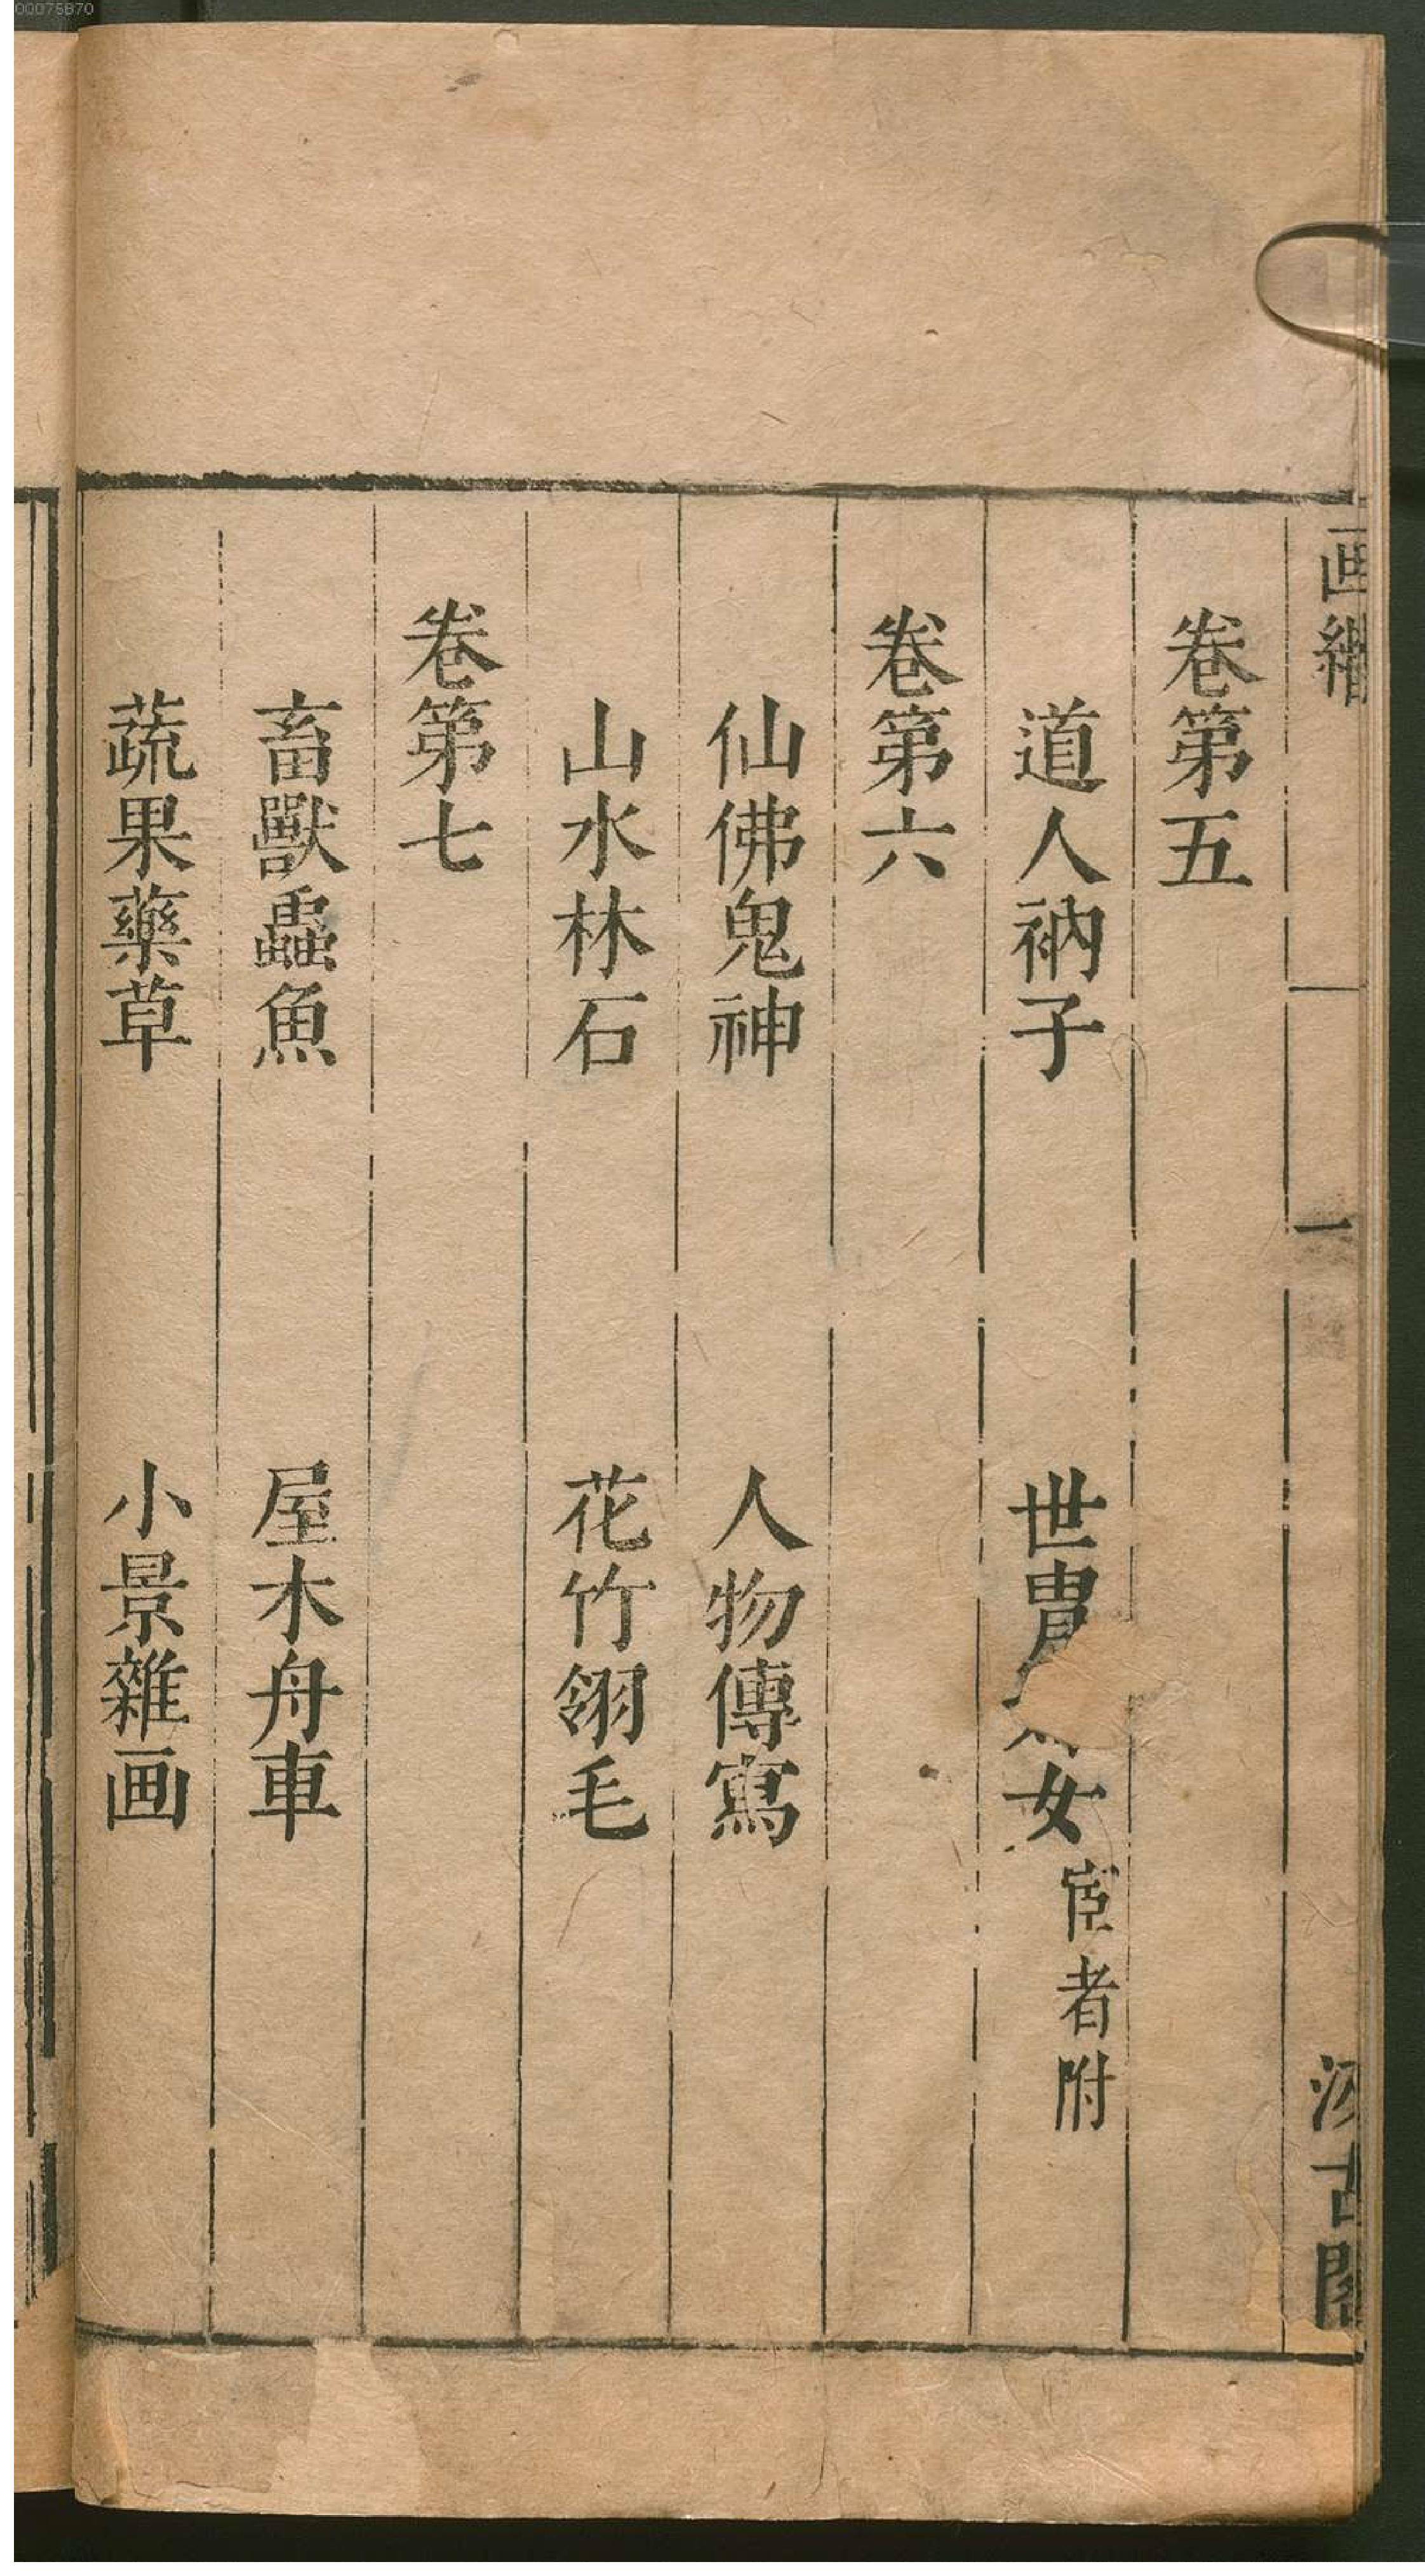 00075870
画
一
汲古閣
卷第五
道人衲子 世冑女宦者附
卷第六
仙佛鬼神 人物傳寫
山水林石 花竹翎毛
卷第七
畜獸蟲魚 屋木舟車
蔬果藥草 小景雜画